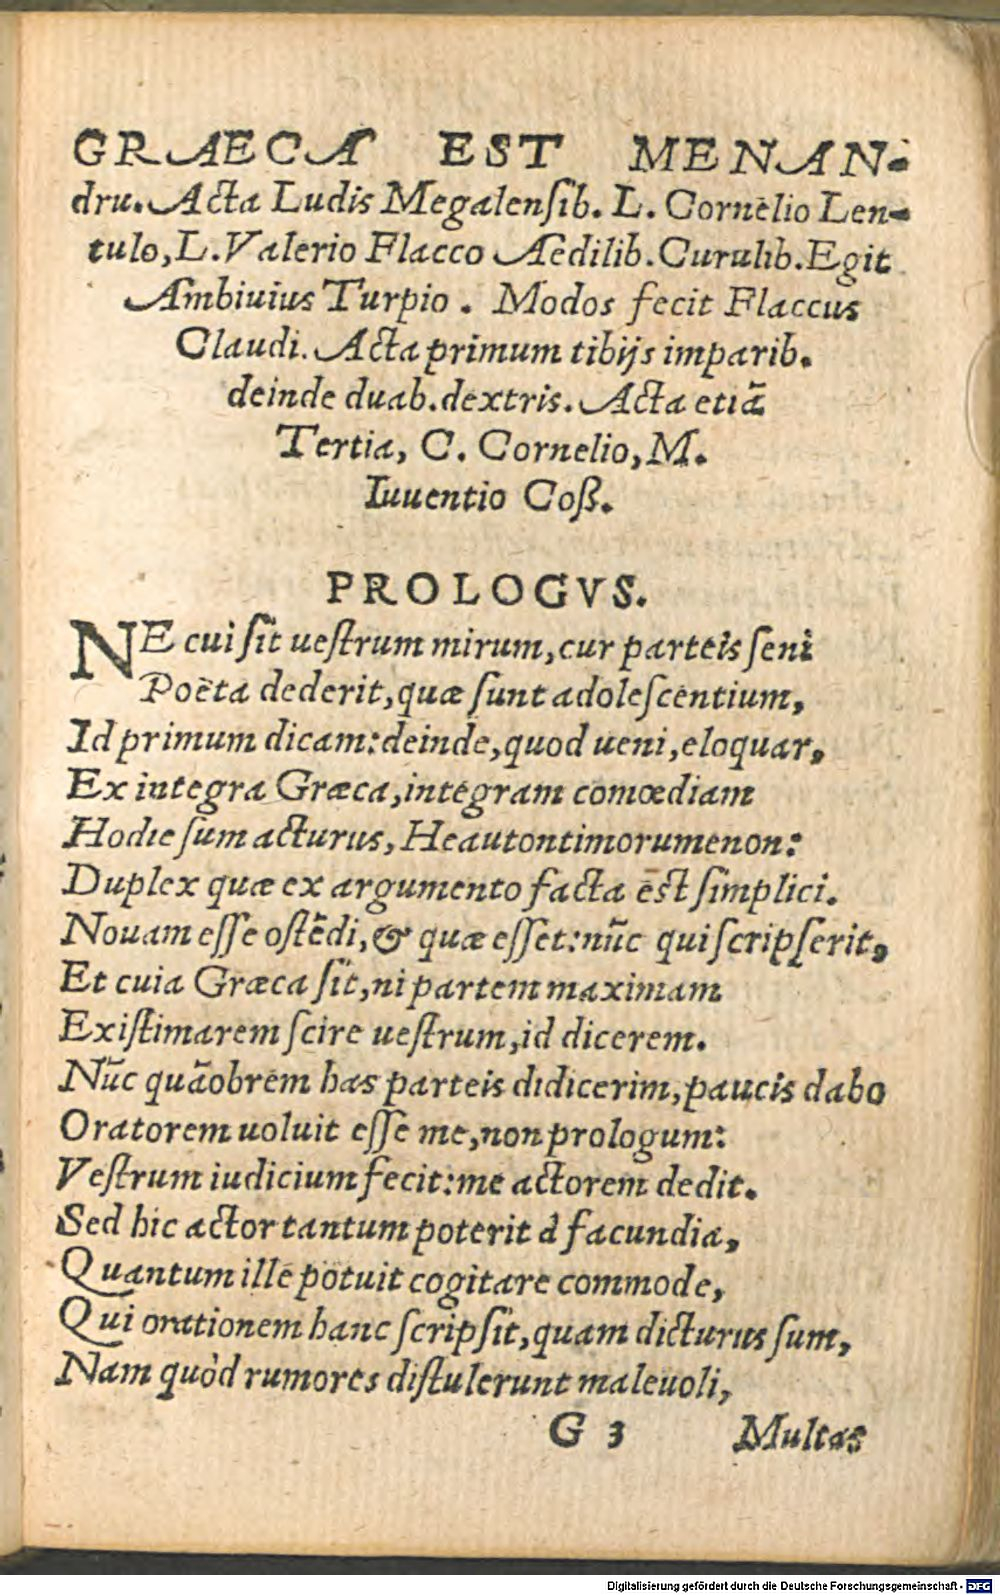 GRAECA EST MENAN-
dru. Acta Ludis Megalensib. L. Cornelio Len-
tulo, L. Valerio Flacco Aedilib. Curulib. Egit
Ambiuius Turpio. Modos fecit Flaccus
Claudi. Acta primum tibijs imparib.
deinde duab. dextris. Acta etiã
Tertia, C. Cornelio, M.
Iuuentio Coß.
PROLOGVS.
NE cui ſit ueſtrum mirum, cur parteis ſeni
Poëta dederit, quæ ſunt adoleſcentium,
Id primum dicam: deinde, quod ueni, eloquar,
Ex integra Græca, integram comœdiam
Hodie ſum acturus, Heautontimorumenon:
Duplex quæ ex argumento facta est ſimplici.
Nouam eſſe oſtẽdi, & quæ eſſet: nũc qui ſcripſerit,
Et cuia Græca ſit, ni partem maximam
Exiſtimarem ſcire ueſtrum, id dicerem.
Nũc quãobrem has parteis didicerim, paucis dabo
Oratorem uoluit eſſe me, non prologum:
Veſtrum iudicium fecit: me actorem dedit.
Sed hic actor tantum poterit à facundia,
Quantum ille potuit cogitare commode,
Qui orationem hanc ſcripſit, quam dicturus ſum,
Nam quòd rumores diſtulerunt maleuoli,
G 3 Multas
Digitalisierung gefördert durch die Deutsche Forschungsgemeinschaft - DFG